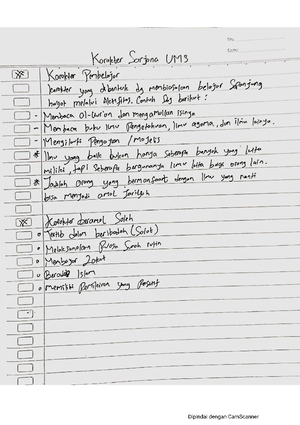 No:
Date:
Karakter Sarjana UMS
Karakter Pembelajar
karakter yang dibentuk dg membiasakan belajar sepanjang
hayat melalui Aktifitas. Contoh sbg berikut :
- Membaca Al-Qur'an dan mengamalkan isinya
- Membaca buku Ilmu Pengetahuan, Ilmu agama, dan ilmu lainnya.
- Mengikuti Pengajian / majelis
* Ilmu yang baik bukan hanya seberapa banyak yang kita
miliki, tapi seberapa bergunanya ilmu kita bagi orang lain.
* Jadilah orang yang bermanfaat dengan ilmu yang nanti
bisa menjadi amal Jariyah
Karakter beramal Saleh
o Tertib dalam beribadah (Solat)
o Melaksanakan Puasa Sunah rutin
o Membayar Zakat
o Beradab Islam
o Memiliki Pemikiran yang Positif
Dipindai dengan CamScanner